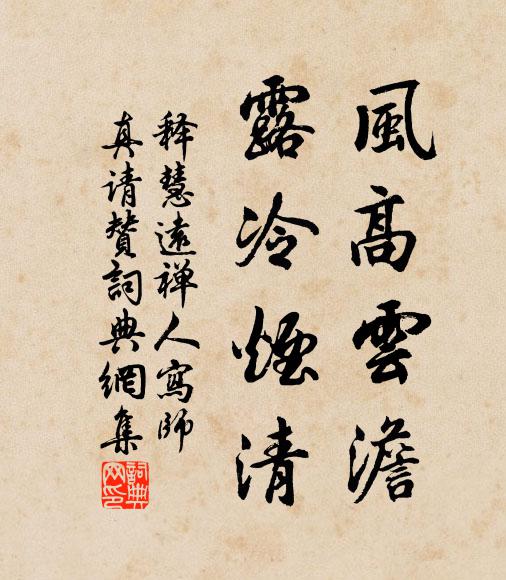 風高雲澹
露冷煙清
释慧遠禅人寫師
真请赞詞典網集
詞典网印